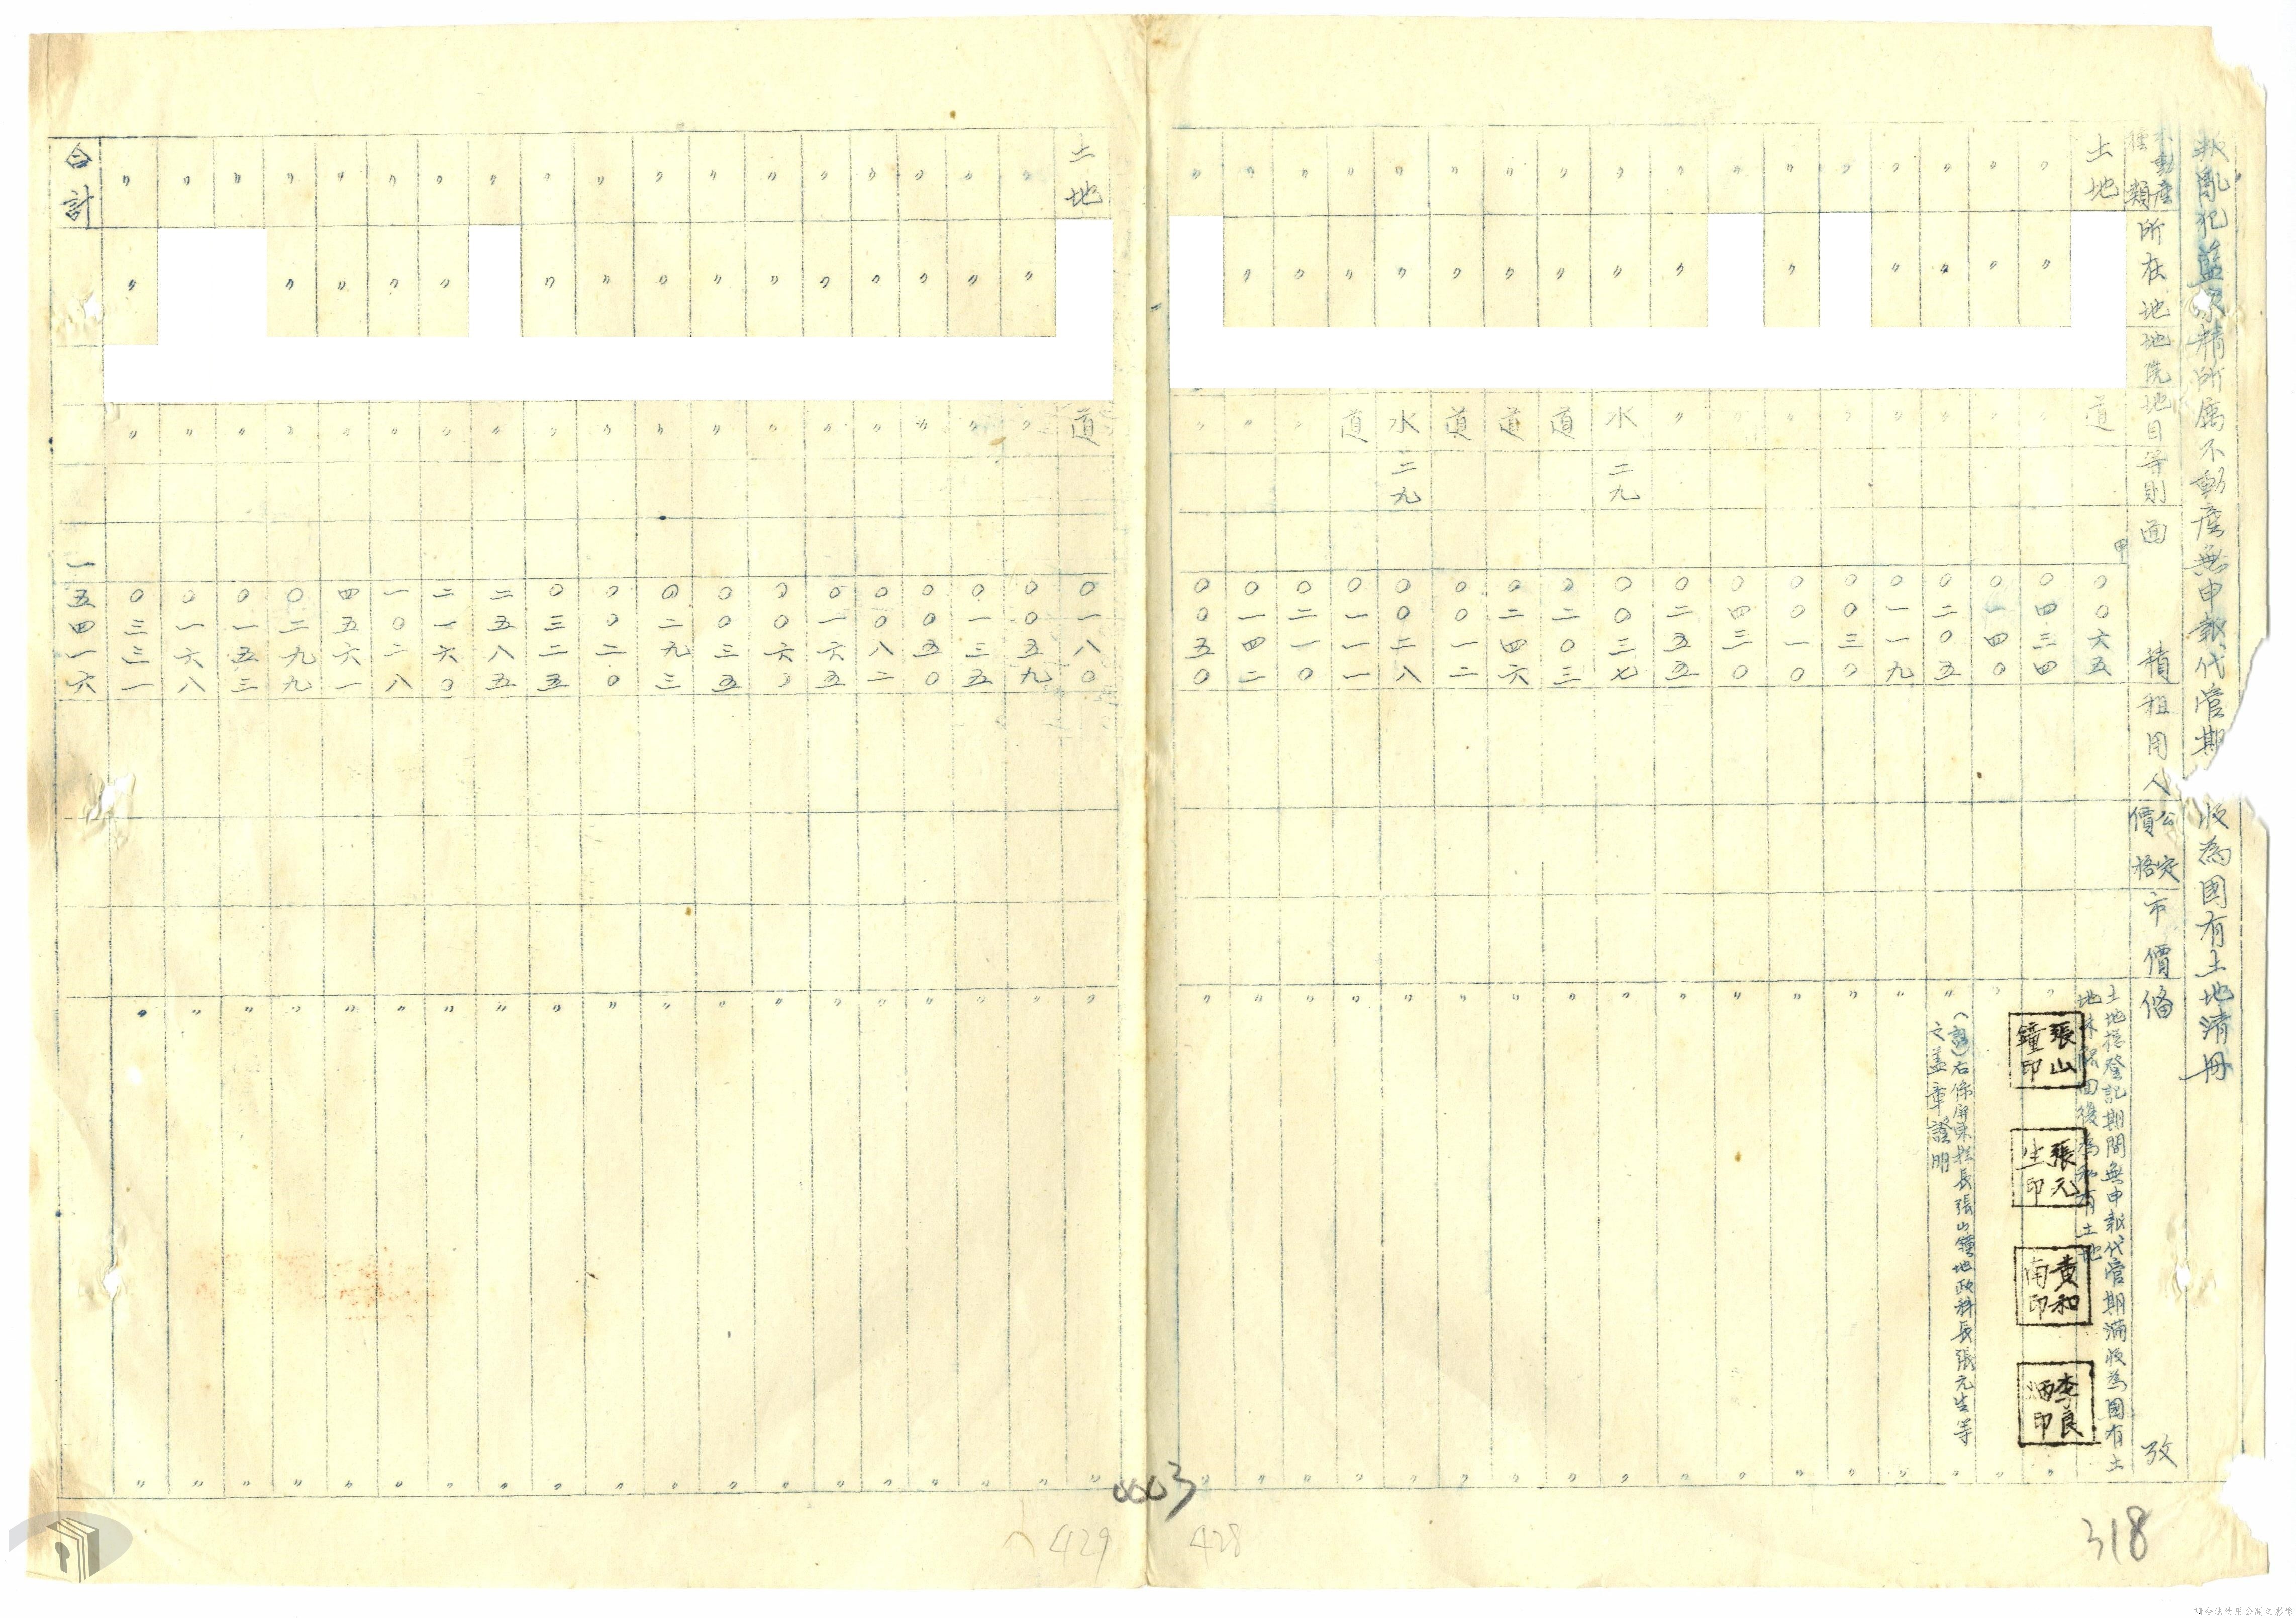 叛亂犯藍家精所屬不動產無申報代管期 收為國有土地清冊
不動產種類 所在地 地號 地目 等則 面積 租用人 公定價格 市價 備攷
土地 道 甲 〇〇六五 土地總登記期間無申報代管期滿收為國有土
地 回後為 有土地
〃 〃 〃 〇四三四 〃 〃
張山鐘印
張元生印
黃和南印
李良炳印
〃 〃 〃 〇一四〇 〃 〃
(註)右係屏東縣長張山鐘地政科長張元生等
文蓋章證明
〃 〃 〃 〇二〇五 〃 〃
〃 〃 〃 〇一一九 〃 〃
〃 〃 〇〇三〇 〃 〃
〃 〃 〃 〇〇一〇 〃 〃
〃 〃 〇四三〇 〃 〃
〃 〃 〃 〇二五五 〃 〃
〃 〃 水 二九 〇〇三七 〃 〃
〃 〃 道 〇二〇三 〃 〃
〃 〃 道 〇二四六 〃 〃
〃 〃 道 〇〇一二 〃 〃
〃 〃 水 二九 〇〇二八 〃 〃
〃 〃 道 〇一一一 〃 〃
〃 〃 〃 〇二一〇 〃 〃
〃 〃 〃 〇一四二 〃 〃
〃 〃 〇〇五〇 〃 〃
土地 道 〇一八〇 〃 〃
〃 〃 〃 〇〇五九 〃 〃
〃 〃 〃 〇一三五 〃 〃
〃 〃 〃 〇〇五〇 〃 〃
〃 〃 〃 〇〇八二 〃 〃
〃 〃 〃 〇一六五 〃 〃
〃 〃 〃 〇〇六〇 〃 〃
〃 〃 〃 〇〇三五 〃 〃
〃 〃 〃 〇二九三 〃 〃
〃 〃 〃 〇〇二〇 〃 〃
〃 〃 〃 〇三二五 〃 〃
〃 〃 二五八五 〃 〃
〃 〃 〃 二一六〇 〃 〃
〃 〃 〃 一〇二八 〃 〃
〃 〃 〃 四五六一 〃 〃
〃 〃 〃 〇二九九 〃 〃
〃 〃 〇一五三 〃 〃
〃 〃 〇一六八 〃 〃
〃 〃 〃 〇三三一 〃 〃
合計 一五四一六
0003
318
428
429
請合法使用公開之影像